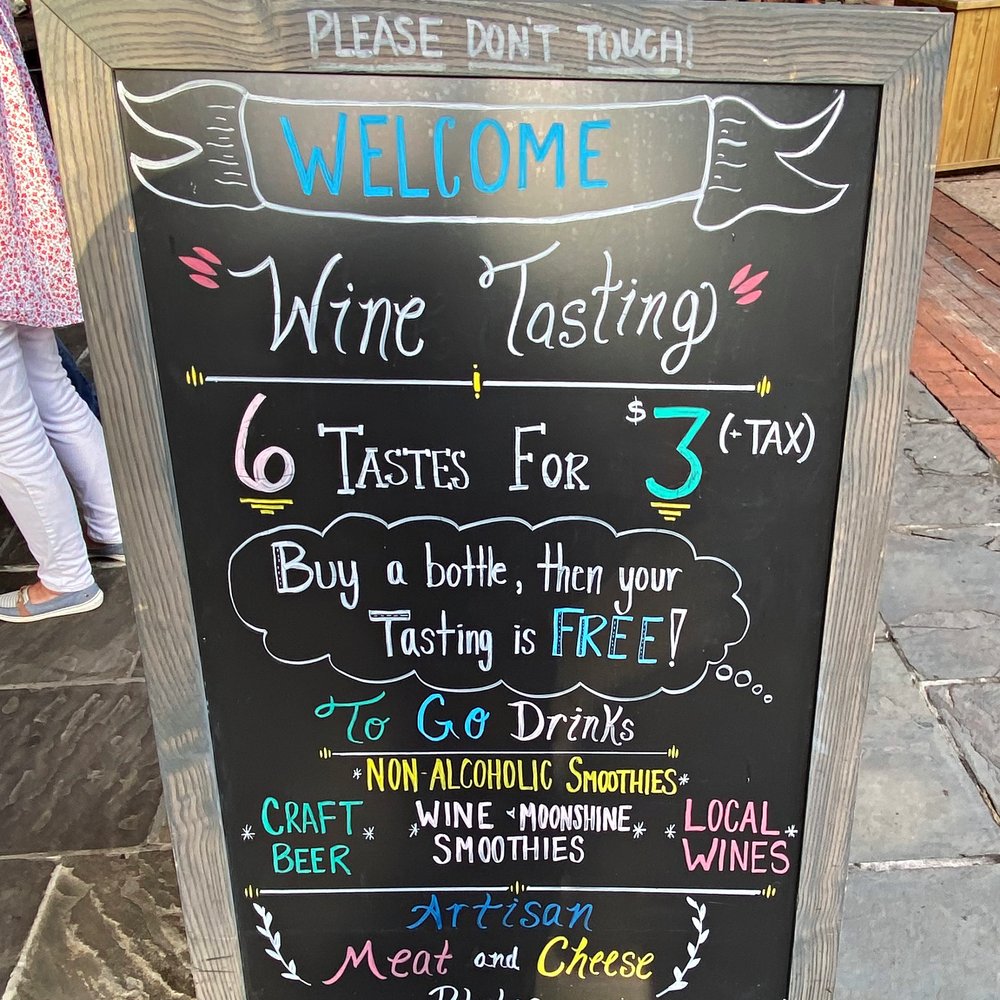 PLEASE DON'T TOUCH!
WELCOME
Wine Tasting
6 TASTES FOR $3 (+TAX)
Buy a bottle, then your
Tasting is FREE!
To Go Drinks
*NON-ALCOHOLIC SMOOTHIES*
*CRAFT BEER*
*WINE & MOONSHINE SMOOTHIES*
*LOCAL WINES*
Artisan
Meat and Cheese